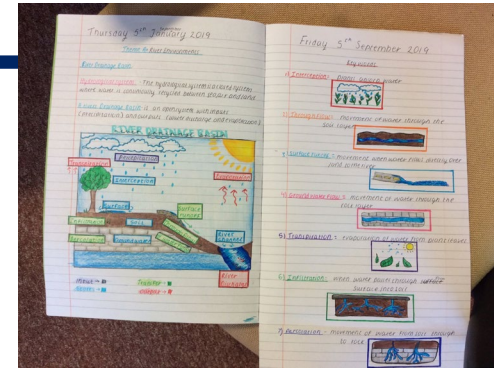 Thursday 31st January 2019
River Environments
River Drainage Basin
Hydrological system - The hydrological system is a closed system
where water is continuously recycled between sea, air and land
River Drainage Basin is an open system with inputs
(precipitation) and outputs (river discharge and evaporation)
RIVER DRAINAGE BASIN
Transpiration
Precipitation
Interception
Evaporation
Surface
Surface Runoff
Infiltration
Soil
Percolation
Groundwater
River Channel
River Discharge
Transfer =
Friday 5th September 2019
Keywords
1) Interception - Plants absorb water
2) Throughflow - movement of water through the
soil layer
3) Surface Runoff - movement when water flows directly over
land to the river
4) Ground water flow - movement of water through the
rock layer
5) Transpiration - evaporation of water from plants leaves
6) Infiltration - when water passes through
surface into soil
7) Percolation - movement of water from soil through
to rock